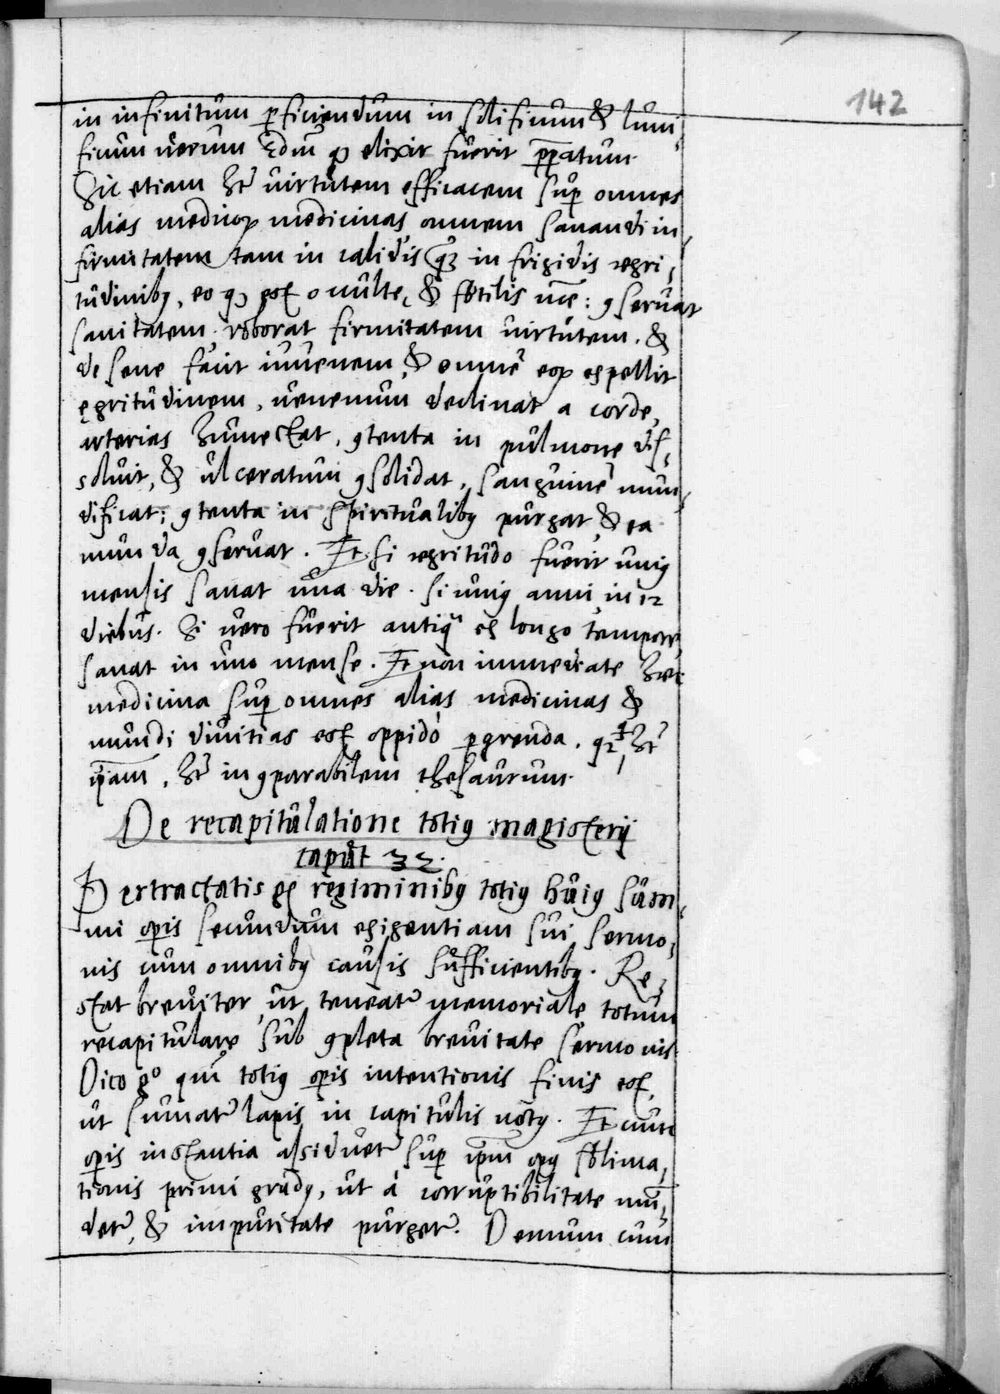 142
in infinitum ꝑficiendum in solificum & luni,
ficum uerum scdm̄ ꝙ elixir fuerit p̄ꝑatum.
Sic etiam hꝫ uirtutem efficacem suꝑ omnes
alias medicoꝝ medicinas omnem sanandi in,
firmitatem tam in calidis qꝫ in frigidis egri,
tudinibꝰ, eo ꝙ est occulte, & sbtilis nãe: ꝯseruat
sanitatem, roborat firmitatem uirtutem. &
de sene facit iuuenem, & omnē eoꝝ expellit
ęgritudinem, uenenum declinat a corde,
arterias humectat, ꝯtenta in pulmone dis,
soluit, & ulceratum ꝯsolidat, sanguinē mun,
dificat: ꝯtenta in spiritualibꝰ purgat, & ea
munda ꝯseruat. Et si egritudo fuerit uniꝰ
mensis sanat una die. si uniꝰ anni in 12
diebus. Si uero fuerit antiqͣ ex longo tempore
sanat in uno mense. Et non immediate hec
medicina suꝑ omnes alias medicinas &
mundi diuitias est oppido ꝑqrenda. q̇ hꝫ
ip̄am, hꝫ inꝯparabilem thesaurum.
De recapitulatione totiꝰ magisterij
caput 32.
Pertractatis regiminibꝰ totiꝰ huiꝰ sum,
mi oꝑis secundum exigentiam sui sermo,
nis cum omnibꝰ causis sufficientibꝰ. Re,
stat breuiter, ut teneatᷣ memoriale totum
recapitulare sub ꝯpleta breuitate sermonis
Dico gͦ qm̄ totiꝰ oꝑis intentionis finis est,
ut sumatᷣ lapis in capitulis notꝰ. Et cum
oꝑis instantia assiduetᷣ suꝑ ip̄m opꝰ sblima,
tionis primi gradꝰ, ut à corruptibilitate mū,
detᷣ, & impuritate purgetᷣ. Demum cum